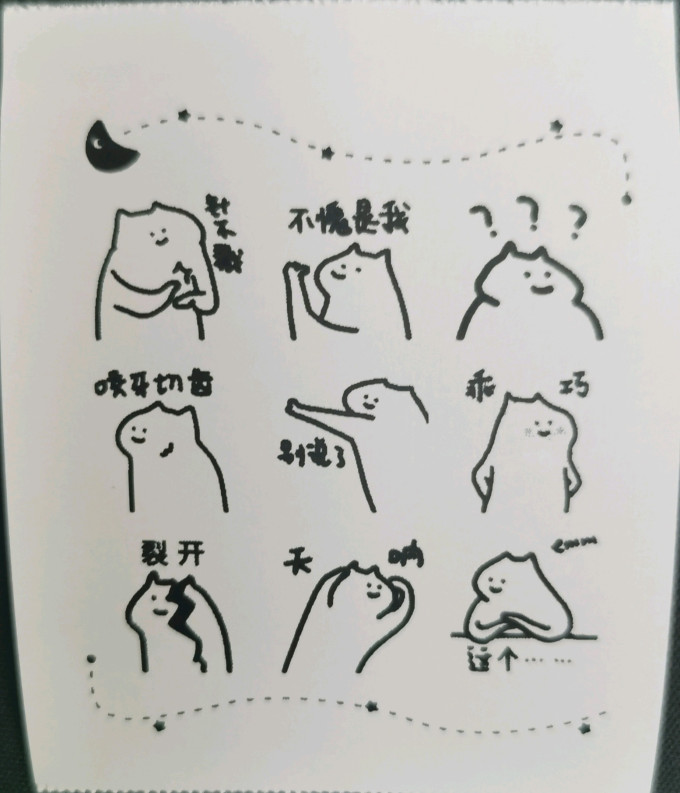 针不戳
不愧是我
? ? ?
咬牙切齿
别说了
乖巧
裂开
天呐
emm
这个……